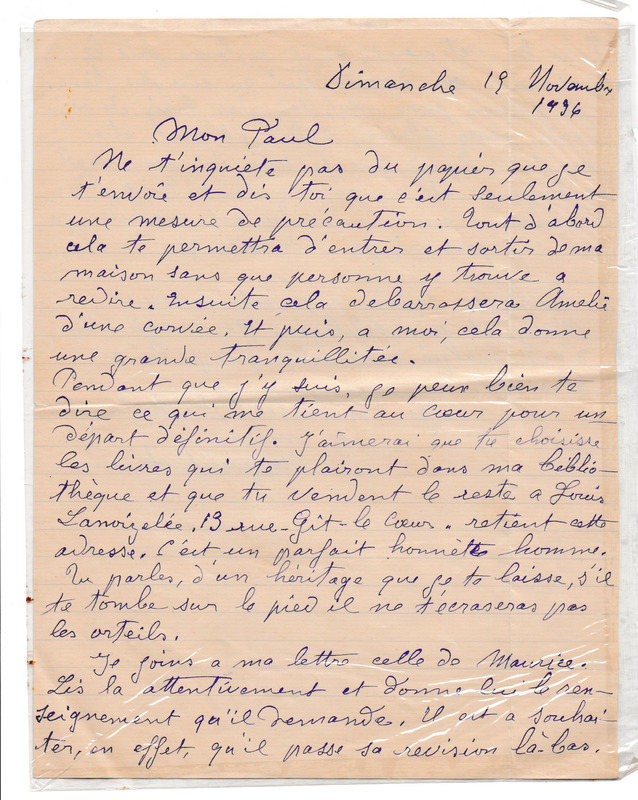 Dimanche 19 Novembre
1936
Mon Paul
Ne t'inquiète pas du papier que je
t'envoie et dis toi que c'est seulement
une mesure de précaution. Tout d'abord
cela te permettra d'entrer et sortir de ma
maison sans que personne y trouve a
redire. Ensuite cela debarrassera Amelie
d'une corvée. Et puis, a moi, cela donne
une grande tranquillitée.
Pendant que j'y suis, je peux bien te
dire ce qui me tient au cœur pour un
départ définitif. J'aimerai que tu choisisse
les livres qui te plairont dans ma biblio-
thèque et que tu vendent le reste a Louis
Lanoizelée. 13 rue-Git-le Cœur. retient cette
adresse. C'est un parfait honnête homme.
Tu parles, d'un héritage que je te laisse, s'il
te tombe sur le pied il ne t'écraseras pas
les orteils.
Je joins a ma lettre celle de Maurice.
Lis la attentivement et donne lui le ren-
seignement qu'il demande. Il est a souhai-
ter, en effet, qu'il passe sa revision là-bas.